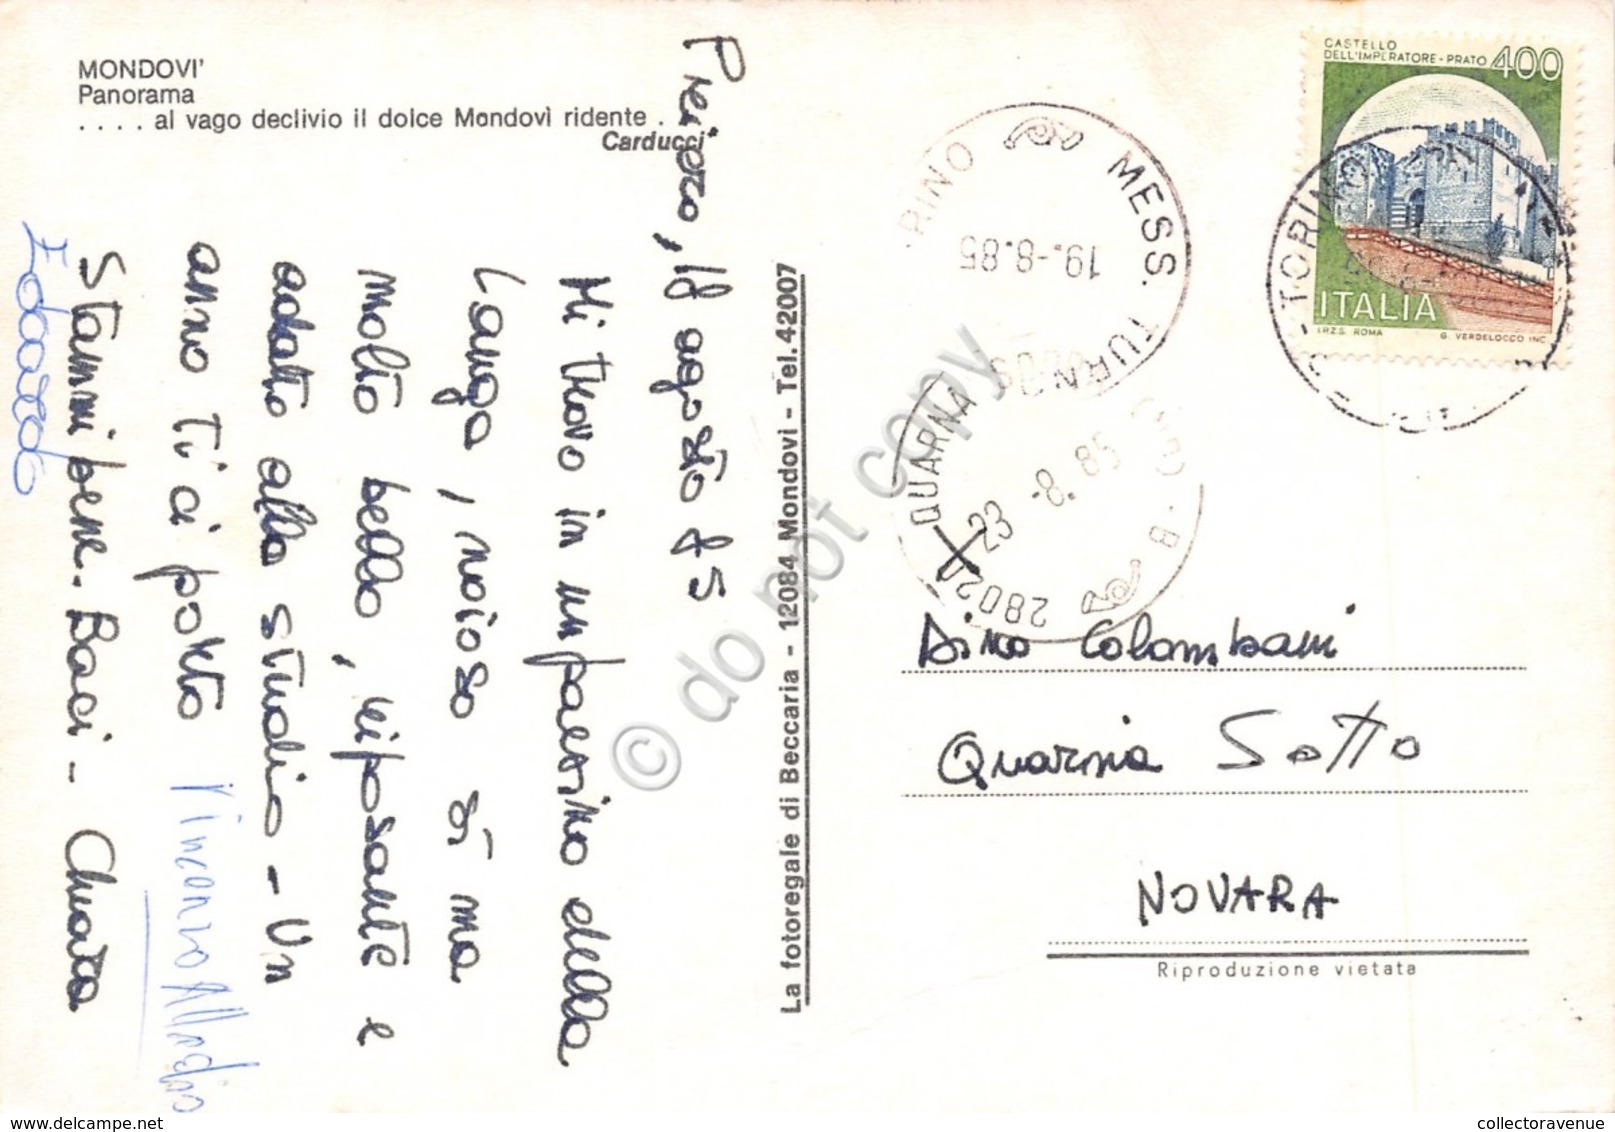 MONDOVI'
Panorama
. . . . al vago declivio il dolce Mondovì ridente .
Carducci
Priero, 18 agosto 85
Mi trovo in un paesino della
Langa, noioso sì ma
molto bello, riposante e
adatto allo studio - Un
anno ti ci porto
Stammi bene. Baci - Chiara
Vincenzo
Edoardo
La fotoregale di Beccaria - 12084 Mondovì - Tel. 42007
CASTELLO
DELL'IMPERATORE - PRATO 400
ITALIA
I.P.Z.S. ROMA G. VERDELOCCO INC.
TORINO
RINO MESS. TURN
19.-8.85
28020 QUARNA
23 -8. 85
B
Dino Colombani
Quarnia Sotto
NOVARA
Riproduzione vietata
© do not copy
collectoravenue / www.delcampe.net